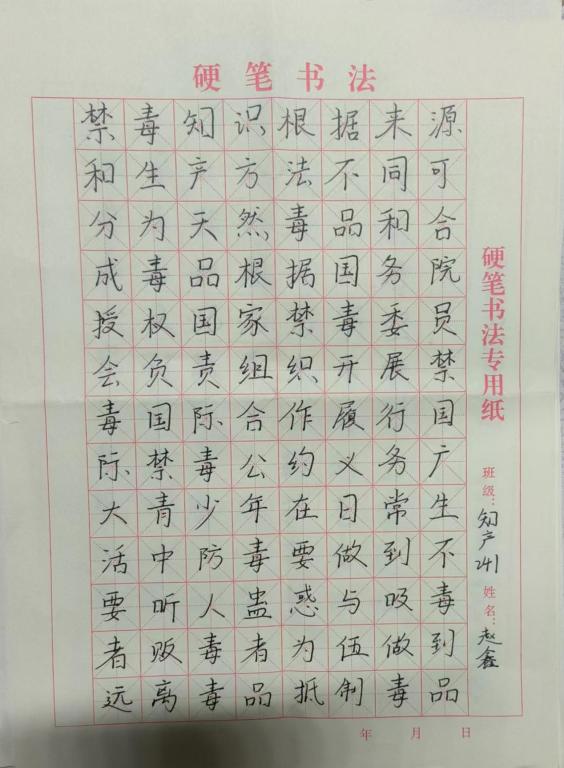 硬笔书法
禁毒知识根据来源可
和生产方法不同可
分为天然毒品和合
成毒品根据国务院
授权国家禁毒委员
会负责组织开展禁
毒国际合作履行国
际禁毒公约义务广
大青少年在日常生
活中防毒要做到不
要听人蛊惑与吸毒
者贩毒者为伍做到
远离毒品抵制毒品
硬笔书法专用纸
班级：知产241 姓名：赵鑫
年 月 日